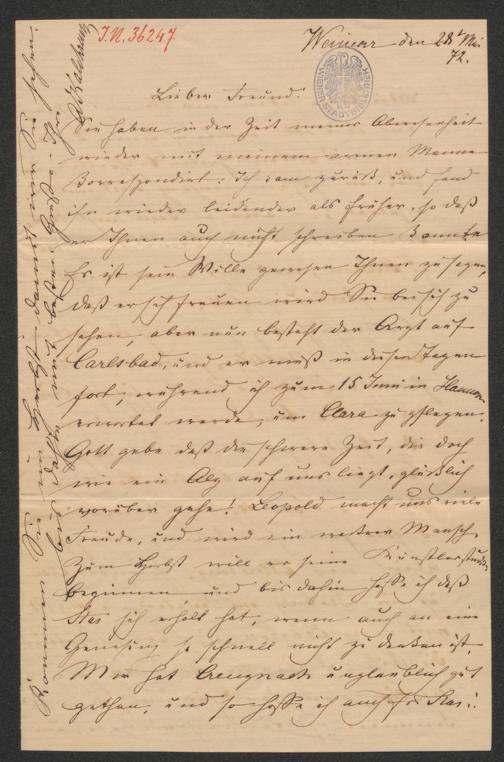 J.N. 36247
Weimar den 28t Mai
72.
Lieber Freund!
Sie haben in der Zeit meiner Abwesenheit
wieder mit meinem armen Manne
Korrespondirt: Ich kam zurück, und fand
ihn wieder leidender als früher, so daß
er Ihnen auch nicht schreiben konnte
Es ist sein Wille gewesen Ihnen zu sagen,
daß er sich freuen wird Sie bei sich zu
sehen, aber nun besteht der Arzt auf
Carlsbad, und er muß in diesen Tagen
fort, während ich zum 15 Juni in
erwartet werde, um Clara zu pflegen.
Gott gebe daß die schwere Zeit, die doch
wie ein Alp auf uns liegt, glücklich
vorüber gehe! Leopold macht uns viele
Freude, und wird ein Mensch.
Zum Herbst will er seine Künstlerstudien
beginnen, und bis dahin hoffe ich daß
Stas sich erholt hat, wenn auch an eine
Genesung so schnell nicht zu denken ist.
Mir hat Creuznach unglaublich gut
gethan, und so hoffe ich auch für Stas:
Kommen Sie im Herbst damit wir Sie sehen.
mit besten Grüße Ihre
WIENER STADTBIBLIOTHEK